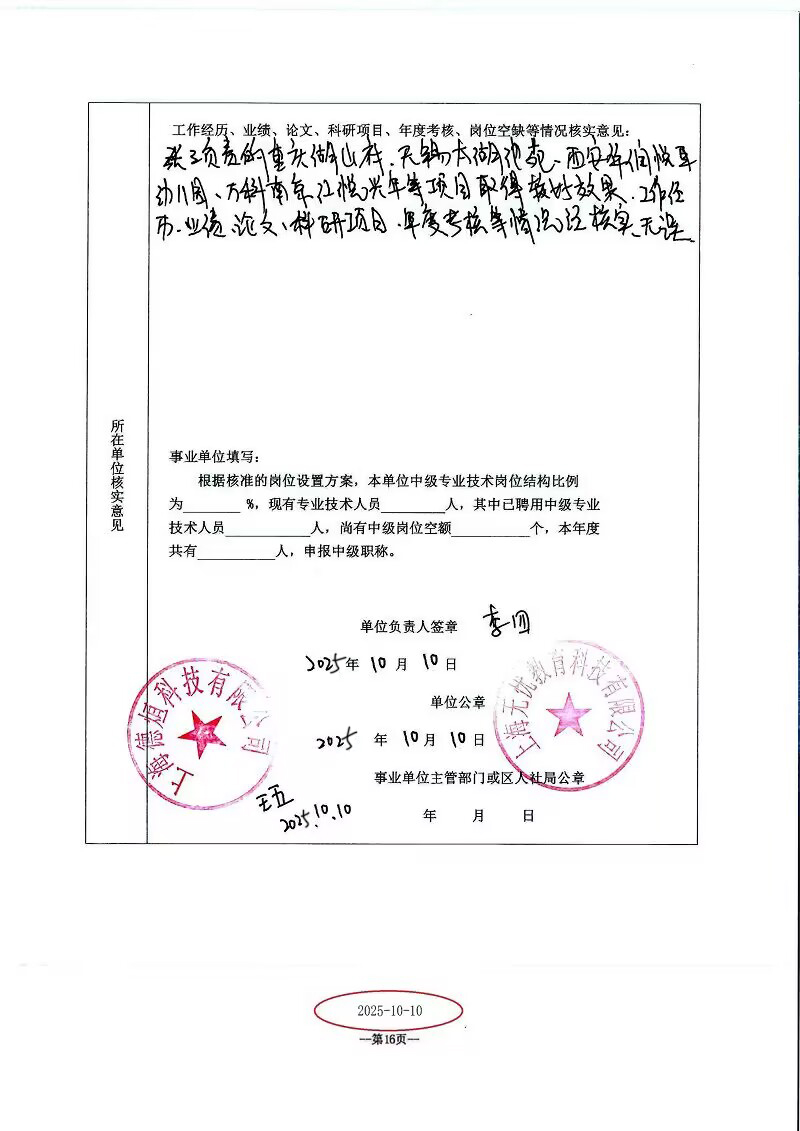 工作经历、业绩、论文、科研项目、年度考核、岗位空缺等情况核实意见:
张三负责的重庆御山府、无锡太湖、西安华润悦府
幼儿园、万科南京江悦兴年等项目取得较好效果、工作经
历、业绩、论文、科研项目、年度考核等情况经核实、无误
所在单位核实意见
事业单位填写:
根据核准的岗位设置方案，本单位中级专业技术岗位结构比例
为_______ %，现有专业技术人员________人，其中已聘用中级专业
技术人员___________人，尚有中级岗位空额__________个，本年度
共有__________人，申报中级职称。
单位负责人签章 李四
2025年 10 月 10 日
单位公章
2025 年 10月 10 日
事业单位主管部门或区人社局公章
年 月 日
上海德恒科技有限公司
上海无忧教育科技有限公司
王五
2025.10.10
2025-10-10
--第16页--